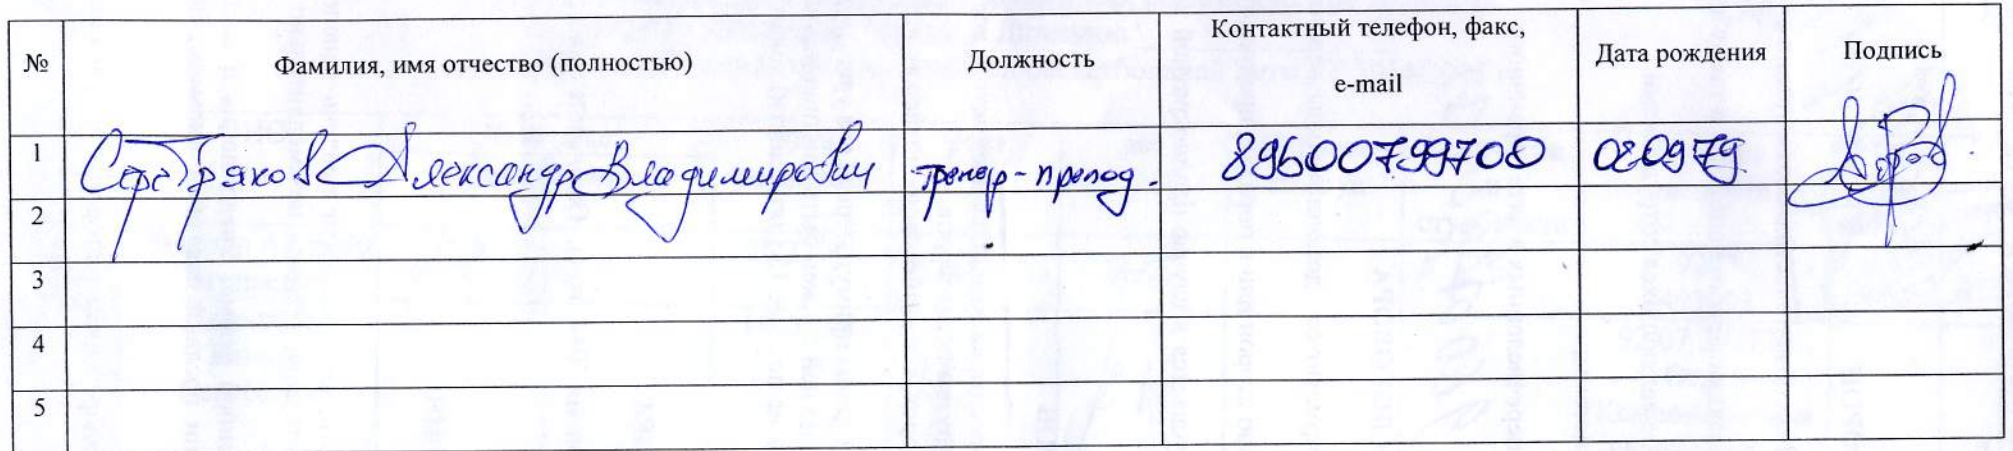 № Фамилия, имя отчество (полностью) Должность Контактный телефон, факс, e-mail Дата рождения Подпись
1 Серебряков Александр Владимирович тренер-препод. 89600799700 020979
2
3
4
5